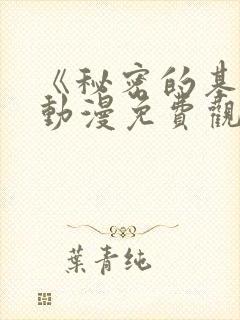 《秘密的基
動漫免費觀
葉青純